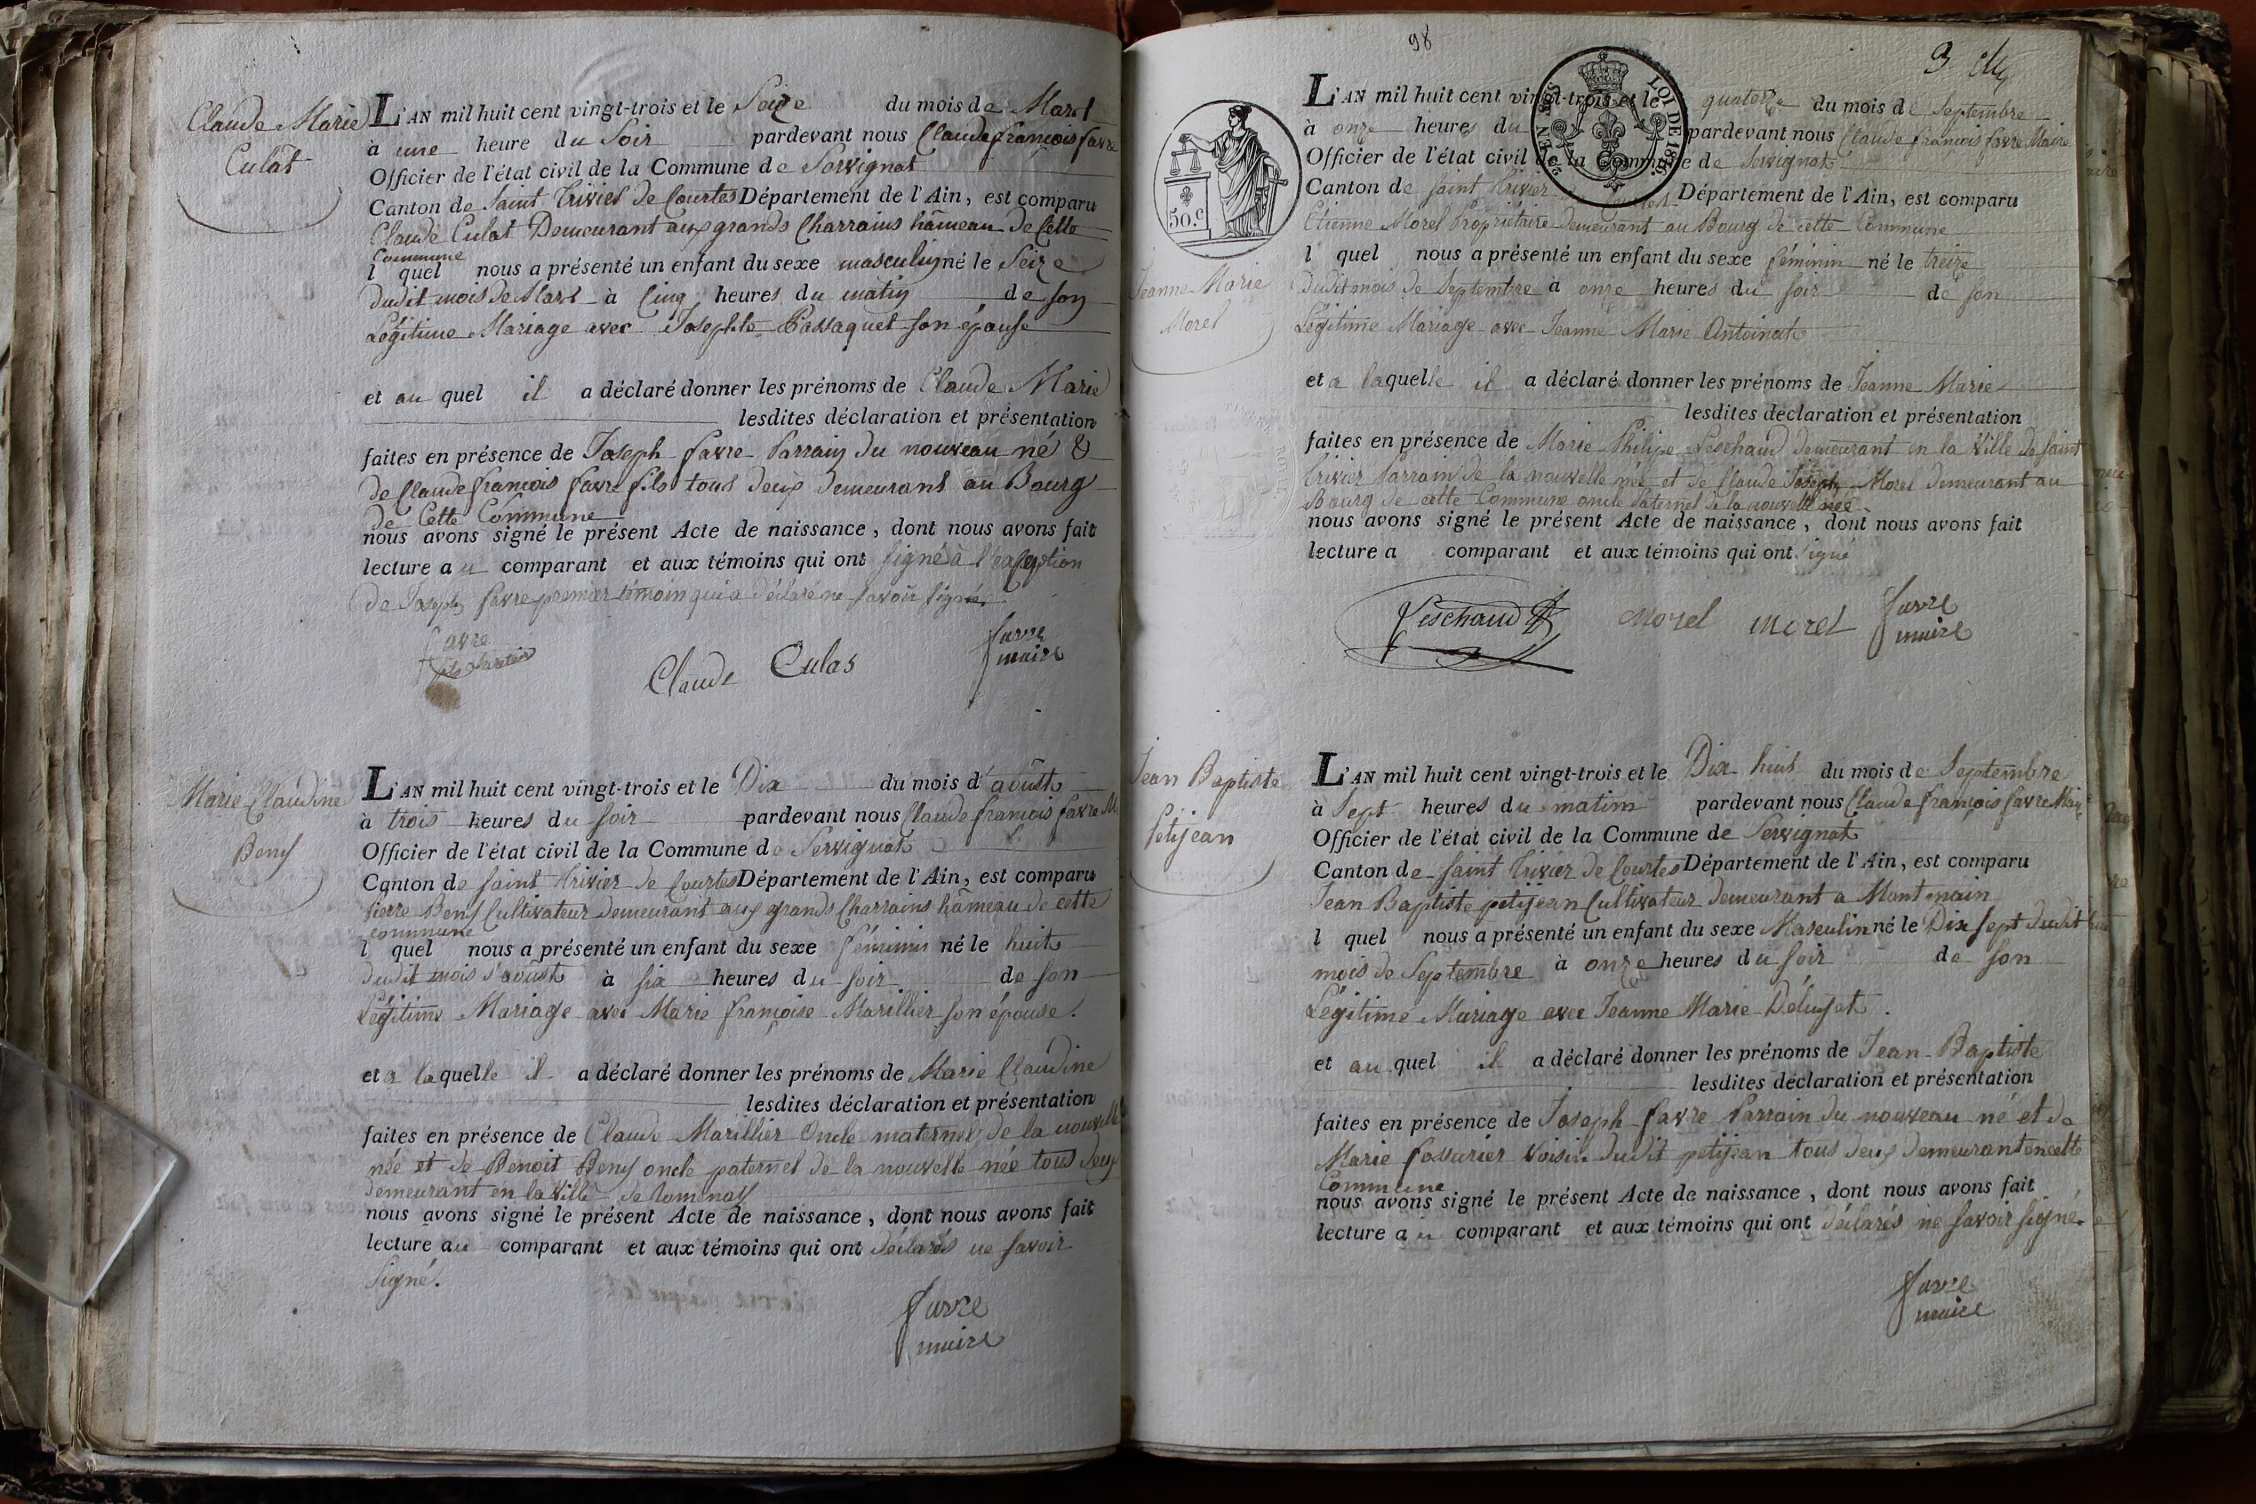 Claude Marie
Culat
L'AN mil huit cent vingt-trois et le Seize du mois de Mars
à une heure du Soir pardevant nous Claude françois favre
Officier de l'état civil de la Commune de Servignat
Canton de Saint Trivier de Courtes Département de l'Ain, est comparu
Claude Culat Demeurant aux grands Charrains hâmeau De Cette
Commune
l quel nous a présenté un enfant du sexe masculin né le Seize
dudit mois de Mars à Cinq heures du matin de son
Légitime Mariage avec Josephte Passaquet son épouse
et au quel il a déclaré donner les prénoms de Claude Marie
lesdites déclaration et présentation
faites en présence de Joseph favre Parrain du nouveau né &
de Claude françois favre fils tous deux demeurant au Bourg
de Cette Commune
nous avons signé le présent Acte de naissance, dont nous avons fait
lecture au comparant et aux témoins qui ont signé à l'exception
de Joseph favre premier témoin qui a déclaré ne savoir signé
favre
fils
Claude Culas
favre
maire
Marie Claudine
Beny
L'AN mil huit cent vingt-trois et le Dix du mois d'août
à trois heures du soir pardevant nous Claude françois favre M.
Officier de l'état civil de la Commune de Servignat
Canton de saint Trivier de Courtes Département de l'Ain, est comparu
pierre Beny Cultivateur demeurant aux grands Charrains hâmeau de cette
commune
l quel nous a présenté un enfant du sexe féminin né le huit
dudit mois d'août à six heures du soir de son
Légitime Mariage avec Marie françoise Marillier son épouse.
et a laquelle il a déclaré donner les prénoms de Marie Claudine
lesdites déclaration et présentation
faites en présence de Claude Marillier Oncle maternel de la nouvelle
née et de Benoit Beny oncle paternel de la nouvelle née tous deux
demeurant en la Ville de Romenay
nous avons signé le présent Acte de naissance, dont nous avons fait
lecture au comparant et aux témoins qui ont déclarés ne savoir
signé.
favre
maire
98
3
LOI DE 1816.
50.c
Jeanne Marie
Morel
L'AN mil huit cent vingt-trois et le quatorze du mois de Septembre
à onze heures du pardevant nous Claude françois favre Maire
Officier de l'état civil de la Commune de Servignat
Canton de saint Trivier Département de l'Ain, est comparu
Etienne Morel Propriétaire demeurant au Bourg de cette Commune
l quel nous a présenté un enfant du sexe féminin né le treize
dudit mois de Septembre à onze heures du soir de son
Légitime Mariage avec Jeanne Marie Antoinat
et a laquelle il a déclaré donner les prénoms de Jeanne Marie
lesdites déclaration et présentation
faites en présence de Marie Philipe Peschaud demeurant en la Ville de saint
Trivier Parrain de la nouvelle née et de Claude Joseph Morel demeurant au
Bourg de cette Commune oncle Paternel de la nouvelle née
nous avons signé le présent Acte de naissance, dont nous avons fait
lecture a comparant et aux témoins qui ont signé
Peschaud Morel Morel favre
maire
Jean Baptiste
Petijean
L'AN mil huit cent vingt-trois et le Dix huit du mois de Septembre
à Sept heures du matin pardevant nous Claude françois favre Maire
Officier de l'état civil de la Commune de Servignat
Canton de saint Trivier de Courtes Département de l'Ain, est comparu
Jean Baptiste petijean Cultivateur Demeurant a Montmain
l quel nous a présenté un enfant du sexe Masculin né le Dix sept dudit
mois de Septembre à onze heures du soir de son
Légitime Mariage avec Jeanne Marie
et au quel il a déclaré donner les prénoms de Jean Baptiste
lesdites déclaration et présentation
faites en présence de Joseph favre Parrain du nouveau né et de
Marie fossurier Voisin dudit petijean tous deux demeurant en cette
Commune
nous avons signé le présent Acte de naissance, dont nous avons fait
lecture au comparant et aux témoins qui ont déclarés ne savoir signé
favre
maire